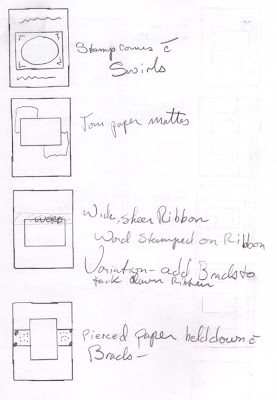 Stamp corners c̄
Swirls
Torn paper mattes
WORD
Wide, sheer Ribbon
Word Stamped on Ribbon
Variation - add Brads to
tack down Ribbon
Pierced paper held down c̄
Brads -